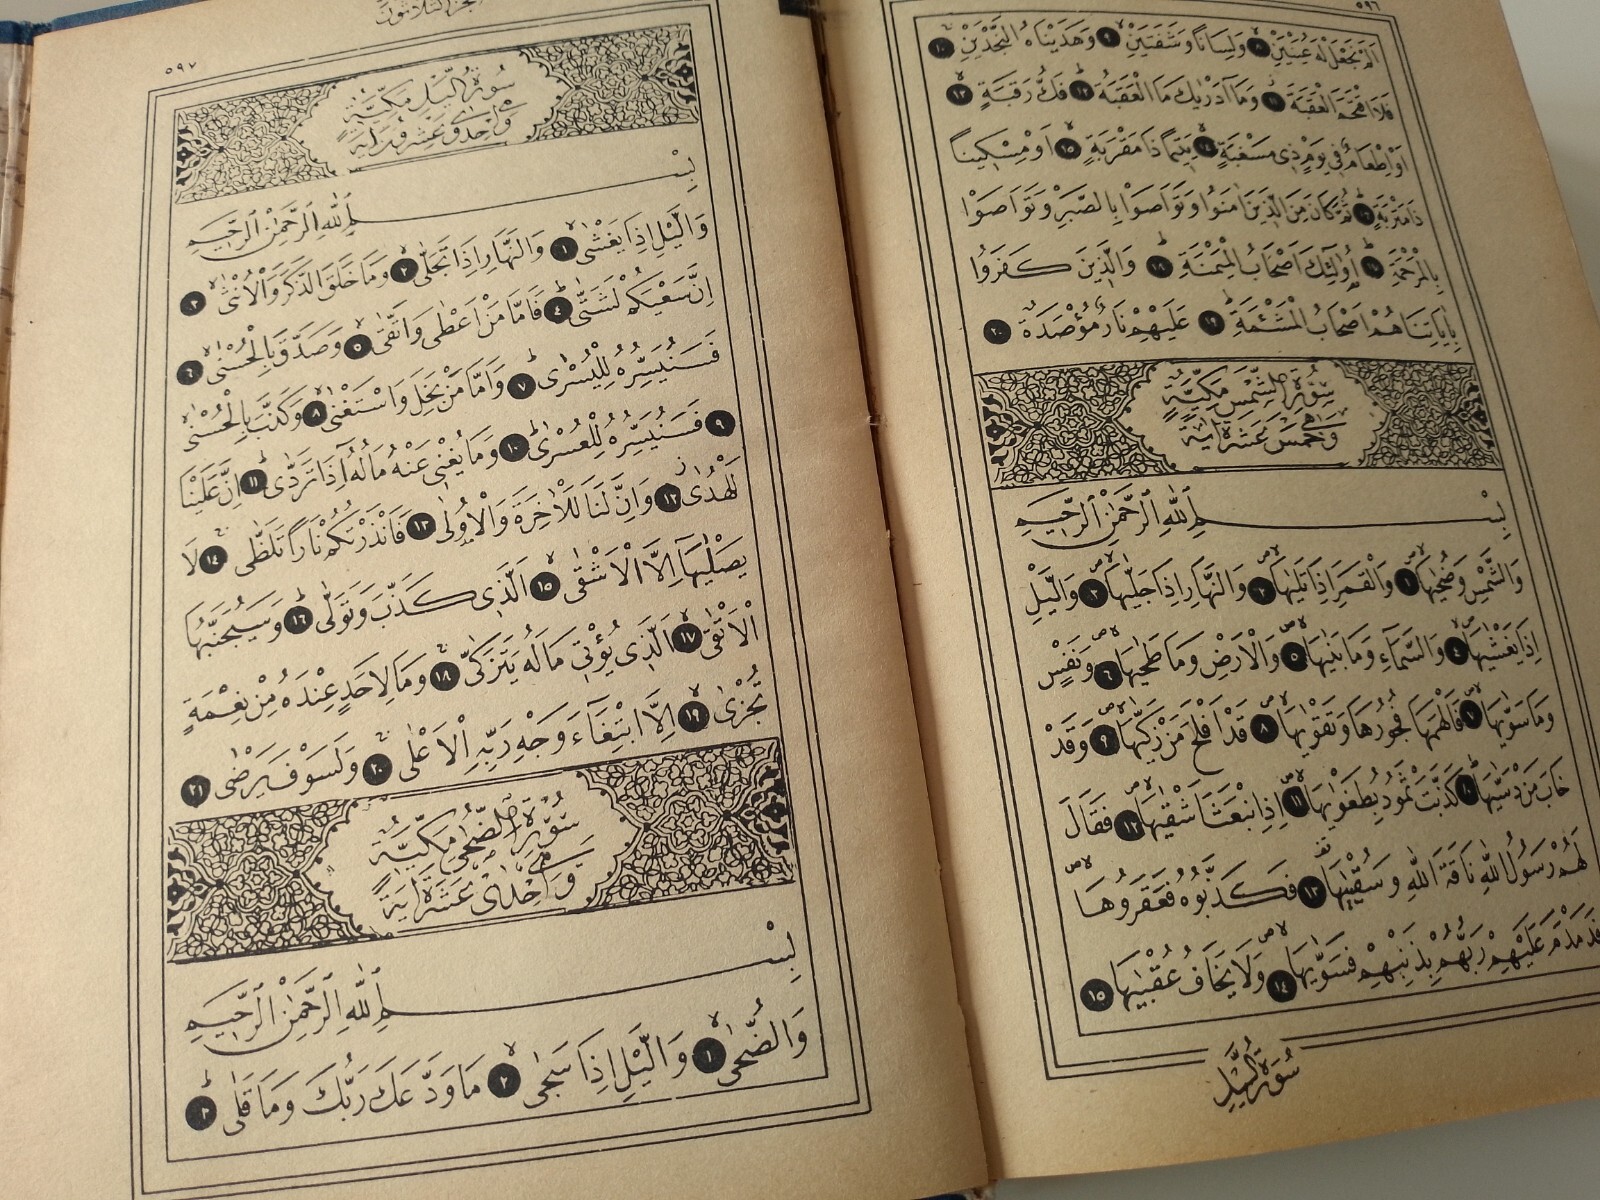 ٥٩٦
اَلَمْ نَجْعَلْ لَهُ عَيْنَيْنِۙ ٨ وَلِسَانًا وَشَفَتَيْنِۙ ٩ وَهَدَيْنَاهُ النَّجْدَيْنِۚ ١٠
فَلَا اقْتَحَمَ الْعَقَبَةَۘ ١١ وَمَٓا اَدْرٰيكَ مَا الْعَقَبَةُۜ ١٢ فَكُّ رَقَبَةٍۙ ١٣
اَوْ اِطْعَامٌ فِي يَوْمٍ ذِي مَسْغَبَةٍۙ ١٤ يَتِيمًا ذَا مَقْرَبَةٍۙ ١٥ اَوْ مِسْكِينًا
ذَا مَتْرَبَةٍۜ ١٦ ثُمَّ كَانَ مِنَ الَّذِينَ اٰمَنُوا وَتَوَاصَوْا بِالصَّبْرِ وَتَوَاصَوْا
بِالْمَرْحَمَةِۜ ١٧ اُو۬لٰٓئِكَ اَصْحَابُ الْمَيْمَنَةِۜ ١٨ وَالَّذِينَ كَفَرُوا
بِاٰيَاتِنَا هُمْ اَصْحَابُ الْمَشْـَٔمَةِۜ ١٩ عَلَيْهِمْ نَارٌ مُؤْصَدَةٌ ٢٠
سُورَةُ الشَّمْسِ مَكِّيَّةٌ
وَهِيَ خَمْسَ عَشْرَةَ اٰيَةً
بِسْمِ اللّٰهِ الرَّحْمٰنِ الرَّحِيمِ
وَالشَّمْسِ وَضُحٰيهَاۙ ١ وَالْقَمَرِ اِذَا تَلٰيهَاۙ ٢ وَالنَّهَارِ اِذَا جَلّٰيهَاۙ ٣ وَالَّيْلِ
اِذَا يَغْشٰيهَاۙ ٤ وَالسَّمَٓاءِ وَمَا بَنٰيهَاۙ ٥ وَالْاَرْضِ وَمَا طَحٰيهَاۙ ٦ وَنَفْسٍ
وَمَا سَوّٰيهَاۙ ٧ فَاَلْهَمَهَا فُجُورَهَا وَتَقْوٰيهَاۙ ٨ قَدْ اَفْلَحَ مَنْ زَكّٰيهَاۙ ٩ وَقَدْ
خَابَ مَنْ دَسّٰيهَاۜ ١٠ كَذَّبَتْ ثَمُودُ بِطَغْوٰيهَاۙ ١١ اِذِ انْبَعَثَ اَشْقٰيهَاۙ ١٢ فَقَالَ
لَهُمْ رَسُولُ اللّٰهِ نَاقَةَ اللّٰهِ وَسُقْيٰيهَا ١٣ فَكَذَّبُوهُ فَعَقَرُوهَاۙ
فَدَمْدَمَ عَلَيْهِمْ رَبُّهُمْ بِذَنْبِهِمْ فَسَوّٰيهَاۙ ١٤ وَلَا يَخَافُ عُقْبٰيهَا ١٥
سُورَةُ الَّيْلِ
الجزء الثلاثون
٥٩٧
سُورَةُ الَّيْلِ مَكِّيَّةٌ
وَهِيَ اِحْدٰى وَعِشْرُونَ اٰيَةً
بِسْمِ اللّٰهِ الرَّحْمٰنِ الرَّحِيمِ
وَالَّيْلِ اِذَا يَغْشٰىۙ ١ وَالنَّهَارِ اِذَا تَجَلّٰىۙ ٢ وَمَا خَلَقَ الذَّكَرَ وَالْاُنْثٰىۙ ٣
اِنَّ سَعْيَكُمْ لَشَتّٰىۜ ٤ فَاَمَّا مَنْ اَعْطٰى وَاتَّقٰىۙ ٥ وَصَدَّقَ بِالْحُسْنٰىۙ ٦
فَسَنُيَسِّرُهُ لِلْيُسْرٰىۜ ٧ وَاَمَّا مَنْ بَخِلَ وَاسْتَغْنٰىۙ ٨ وَكَذَّبَ بِالْحُسْنٰىۙ
٩ فَسَنُيَسِّرُهُ لِلْعُسْرٰىۜ ١٠ وَمَا يُغْنِي عَنْهُ مَالُهُٓ اِذَا تَرَدّٰىۜ ١١ اِنَّ عَلَيْنَا
لَلْهُدٰىۘ ١٢ وَاِنَّ لَنَا لَلْاٰخِرَةَ وَالْاُو۫لٰى ١٣ فَاَنْذَرْتُكُمْ نَارًا تَلَظّٰىۚ ١٤ لَا
يَصْلٰيهَٓا اِلَّا الْاَشْقٰىۙ ١٥ اَلَّذِي كَذَّبَ وَتَوَلّٰىۜ ١٦ وَسَيُجَنَّبُهَا
الْاَتْقٰىۙ ١٧ اَلَّذِي يُؤْتِي مَالَهُ يَتَزَكّٰىۚ ١٨ وَمَا لِاَحَدٍ عِنْدَهُ مِنْ نِعْمَةٍ
تُجْزٰىۙ ١٩ اِلَّا ابْتِغَٓاءَ وَجْهِ رَبِّهِ الْاَعْلٰىۚ ٢٠ وَلَسَوْفَ يَرْضٰى ٢١
سُورَةُ الضُّحٰى مَكِّيَّةٌ
وَهِيَ اِحْدٰى عَشْرَةَ اٰيَةً
بِسْمِ اللّٰهِ الرَّحْمٰنِ الرَّحِيمِ
وَالضُّحٰىۙ ١ وَالَّيْلِ اِذَا سَجٰىۙ ٢ مَا وَدَّعَكَ رَبُّكَ وَمَا قَلٰىۜ ٣